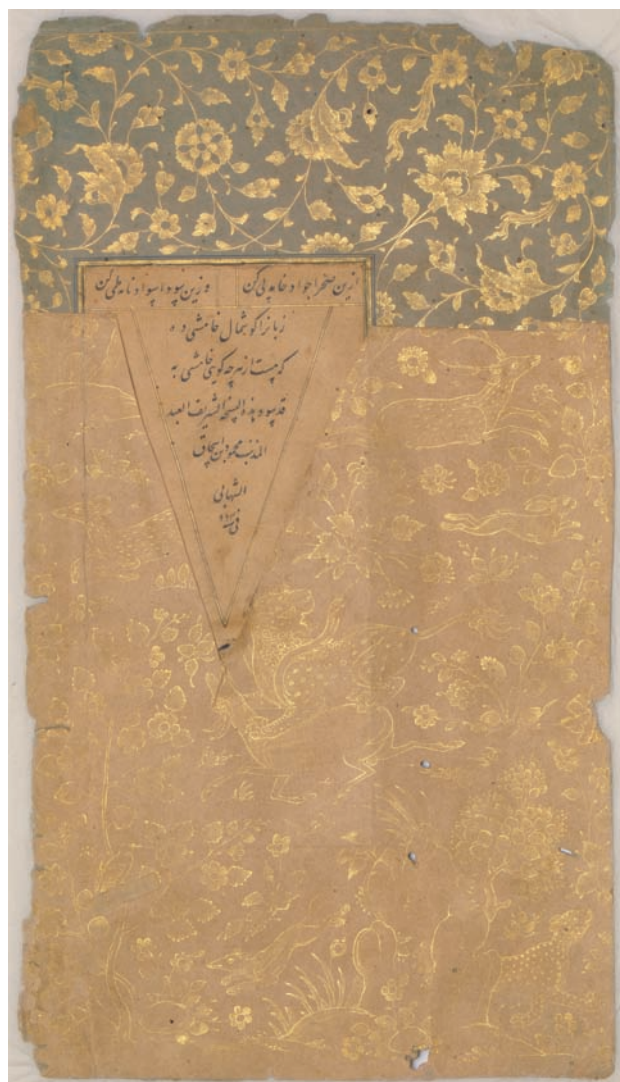 ازین صحرا جواد خامه پی کن وزین سودا سواد نامه طی کن
زبانرا گوشمال خامشی ده
که هست از هر چه گویی خامشی به
قد سود هذه النسخه الشریف العبد
المذنب محمود بن اسحاق
الشهابی
فی سنه